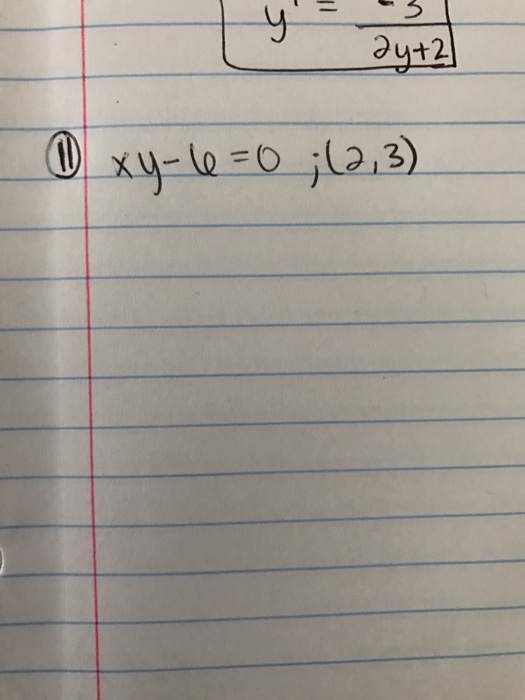 y' = -3
2y+2
11 xy-6=0 ;(2,3)